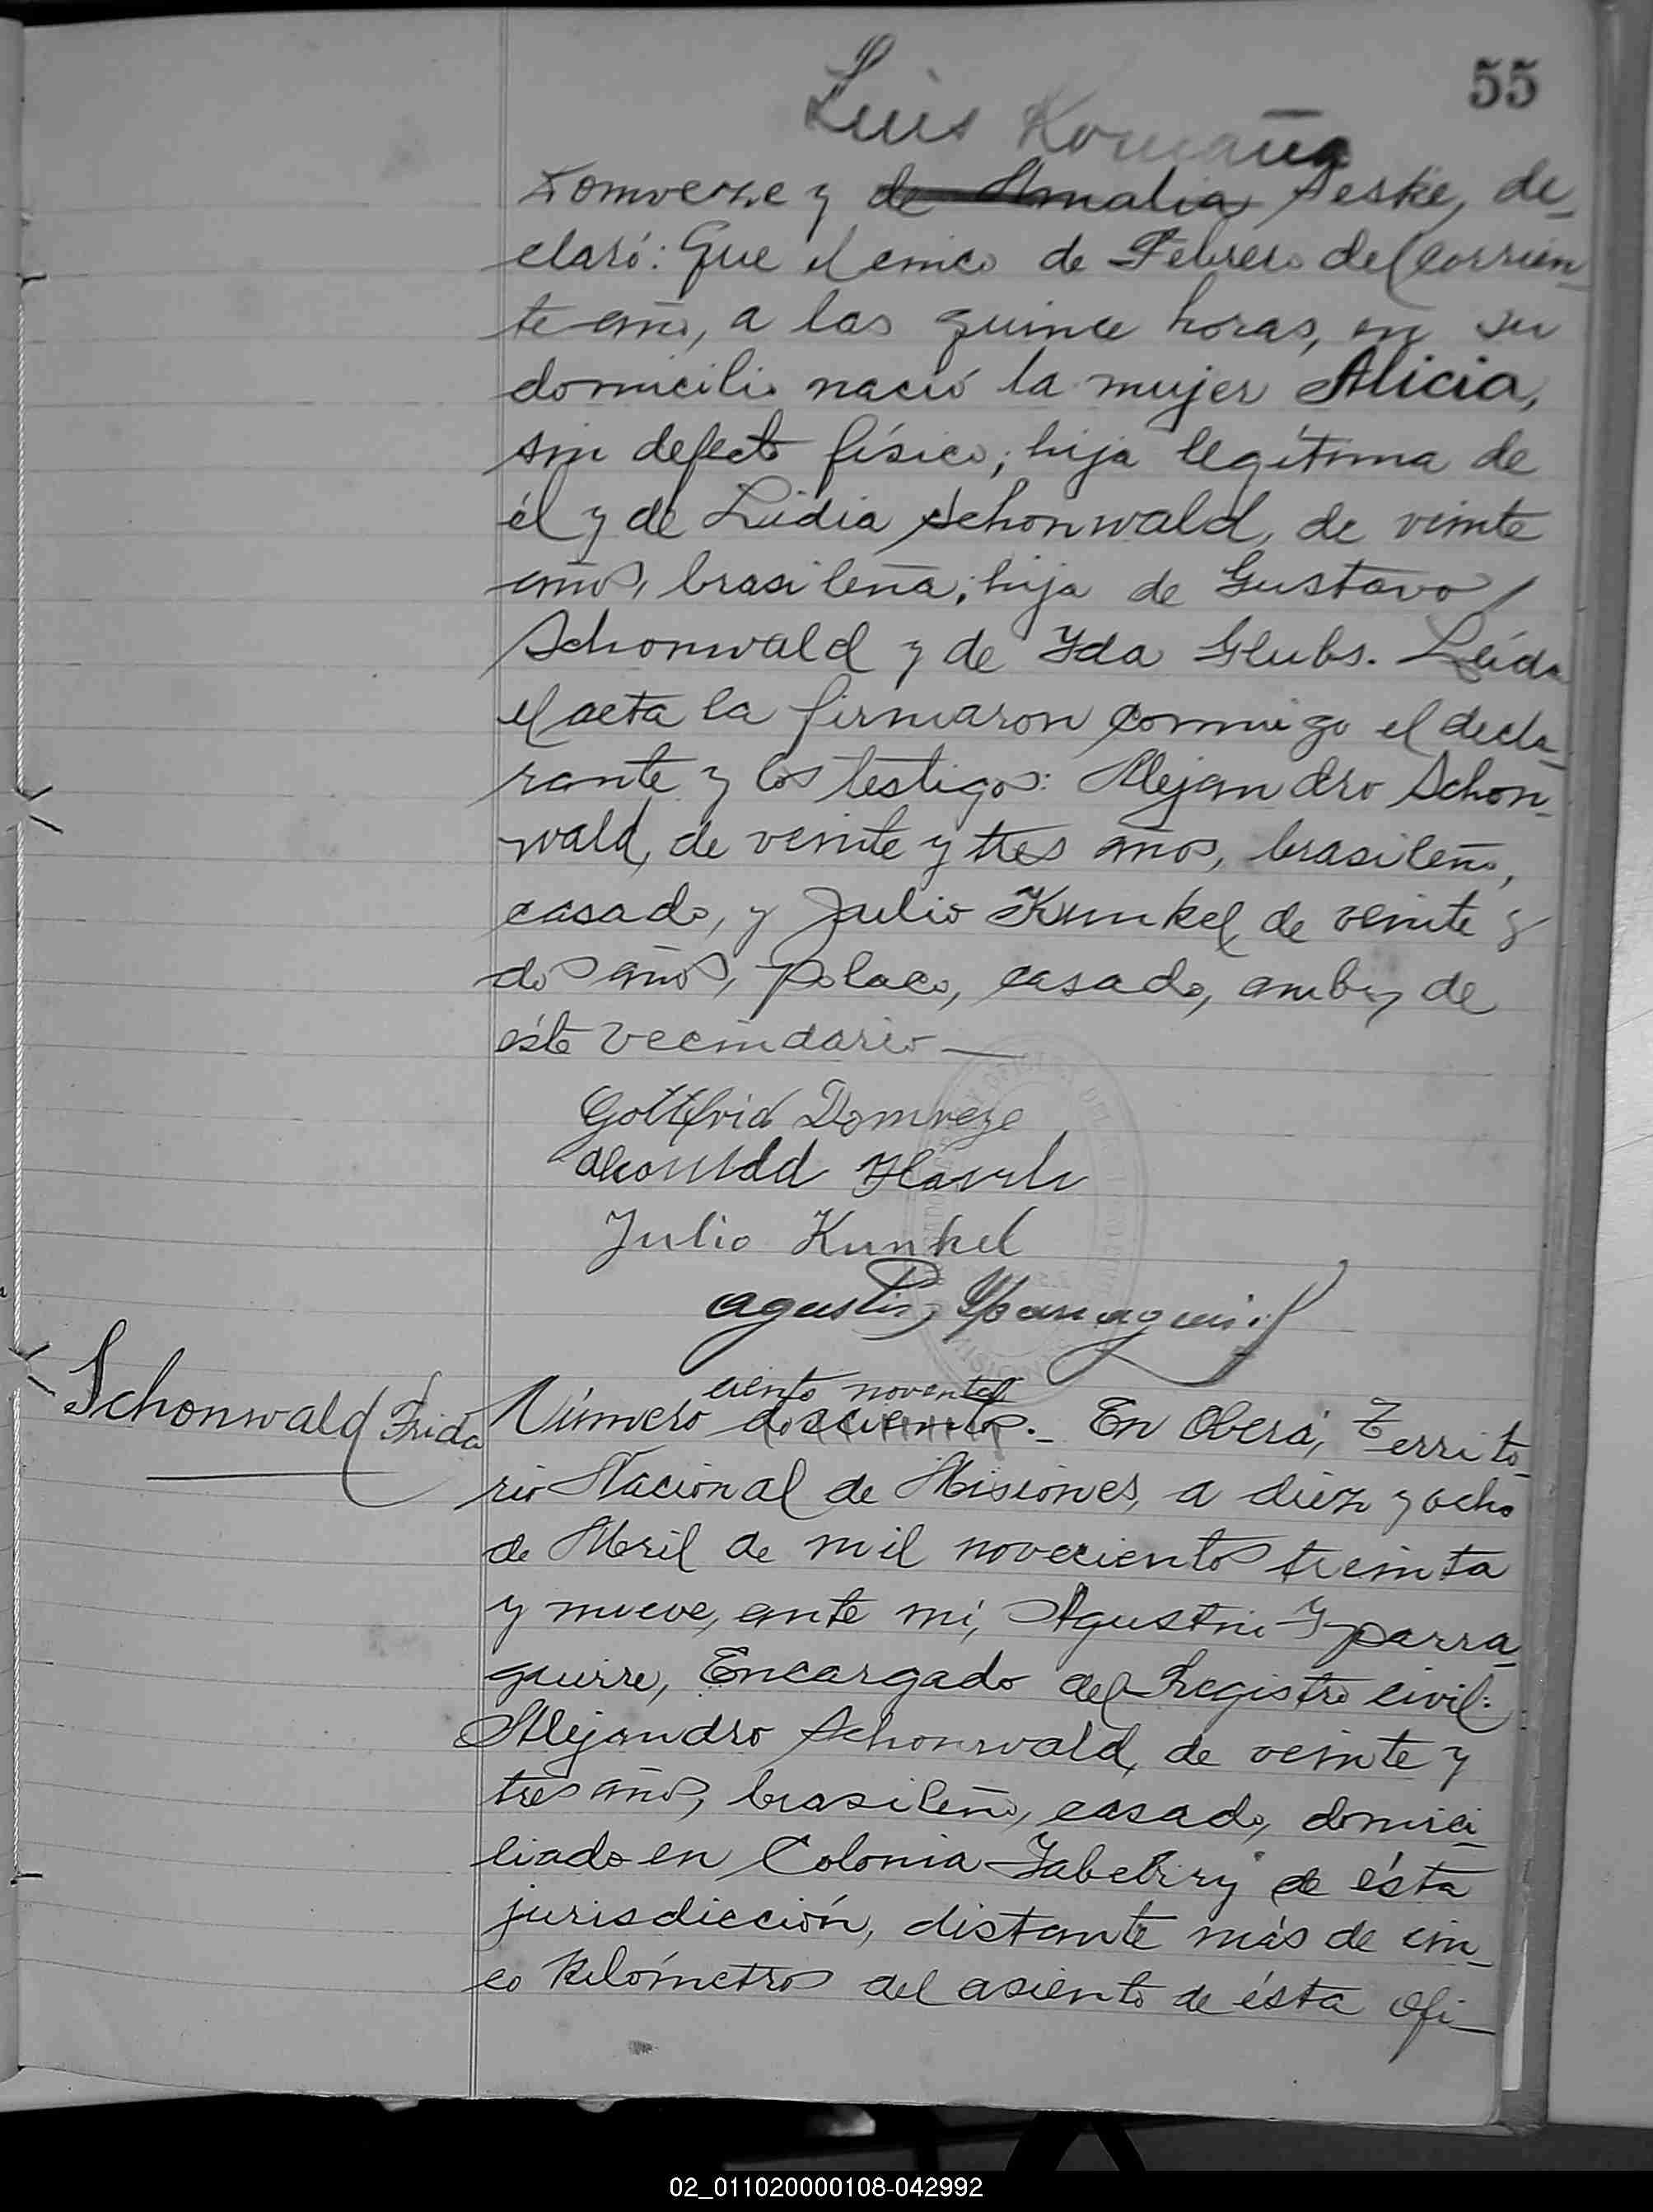 55
Luis Romaña
Domveze y de Amalia Seske, de-
claró: Que el cinco de Febrero del corrien-
te año, a las quince horas, en su
domicilio nació la mujer Alicia,
sin defecto físico; hija legítima de
él y de Lidia Schonwald, de veinte
años, brasileña; hija de Gustavo
Schonwald y de Yda Glubs. Leída
el acta la firmaron conmigo el decla-
rante y los testigos: Alejandro Schon-
wald, de veinte y tres años, brasileño,
casado, y Julio Kunkel, de veinte y
dos años, polaco, casado, ambos de
éste vecindario —
Gottfrid Domveze
Julio Kunkel
Agustin Yparraguirre
Schonwald Frida
ciento noventa
Número doscientos.- En Oberá, Territo-
rio Nacional de Misiones, a diez y ocho
de Abril de mil novecientos treinta
y nueve, ante mí, Agustin Yparra-
guirre, Encargado del Registro civil:
Alejandro Schonwald, de veinte y
tres años, brasileño, casado, domici-
liado en Colonia Yabebiry de ésta
jurisdicción, distante más de cin-
co kilómetros del asiento de ésta Ofi-
02_011020000108-042992